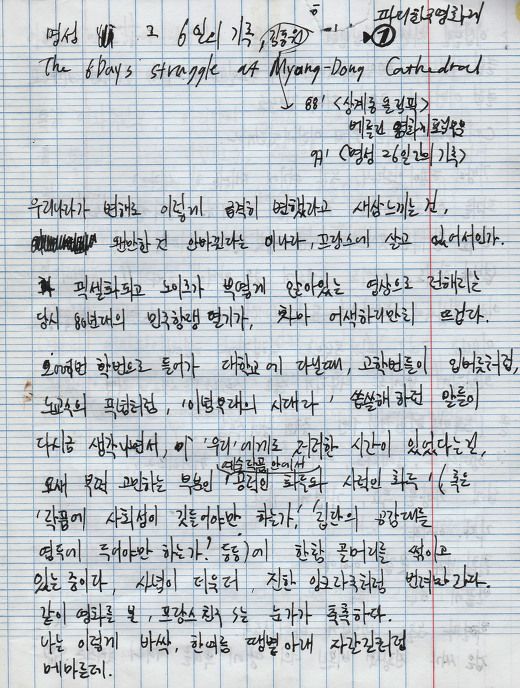 파리한국영화제
명성, 그 6일의 기록, 김동원 ①
The 6Days struggle at Myong-Dong Cathedral
88' <상계동 올림픽>
베를린 영화제
97' <명성 6일간의 기록>
우리나라가 변해도 이렇게 급격히 변했다고 새삼느끼는 건,
완만한건 안바뀐다는 이나라, 프랑스에 살고 있어서인가.
픽셀화되고 노이즈가 부옇게 앉아있는 영상으로 전해지는
당시 80년대의 민주항쟁 열기가, 차마 어색하리만치 뜨겁다.
오여번 학번으로 들어가 대학교에 다닐때, 고학번들이 입버릇처럼,
노교수의 푸념처럼, '이념부재의 시대라' 씁쓸해하던 말들이
다시금 생각나면서, 이 '우리'에게도 저러한 시간이 있었다는건,
요새 부쩍 고민하는 부분인 예술작품 안에서 '공적인 화두와 사적인 화두' (혹은
'작품에 사회성이 깃들어야만 하는가,' '집단의 공감대를
염두에 두어야만 하는가?' 등등)에 한참 골머리를 썩이고
있는 중이다, 사념이 더욱더, 진한 잉크자국처럼 번져만 간다.
같이 영화를 본, 프랑스친구 S는 눈가가 촉촉하다.
나는 이렇게 바싹, 한여름 땡볕아래 자갈길처럼
메마른데.